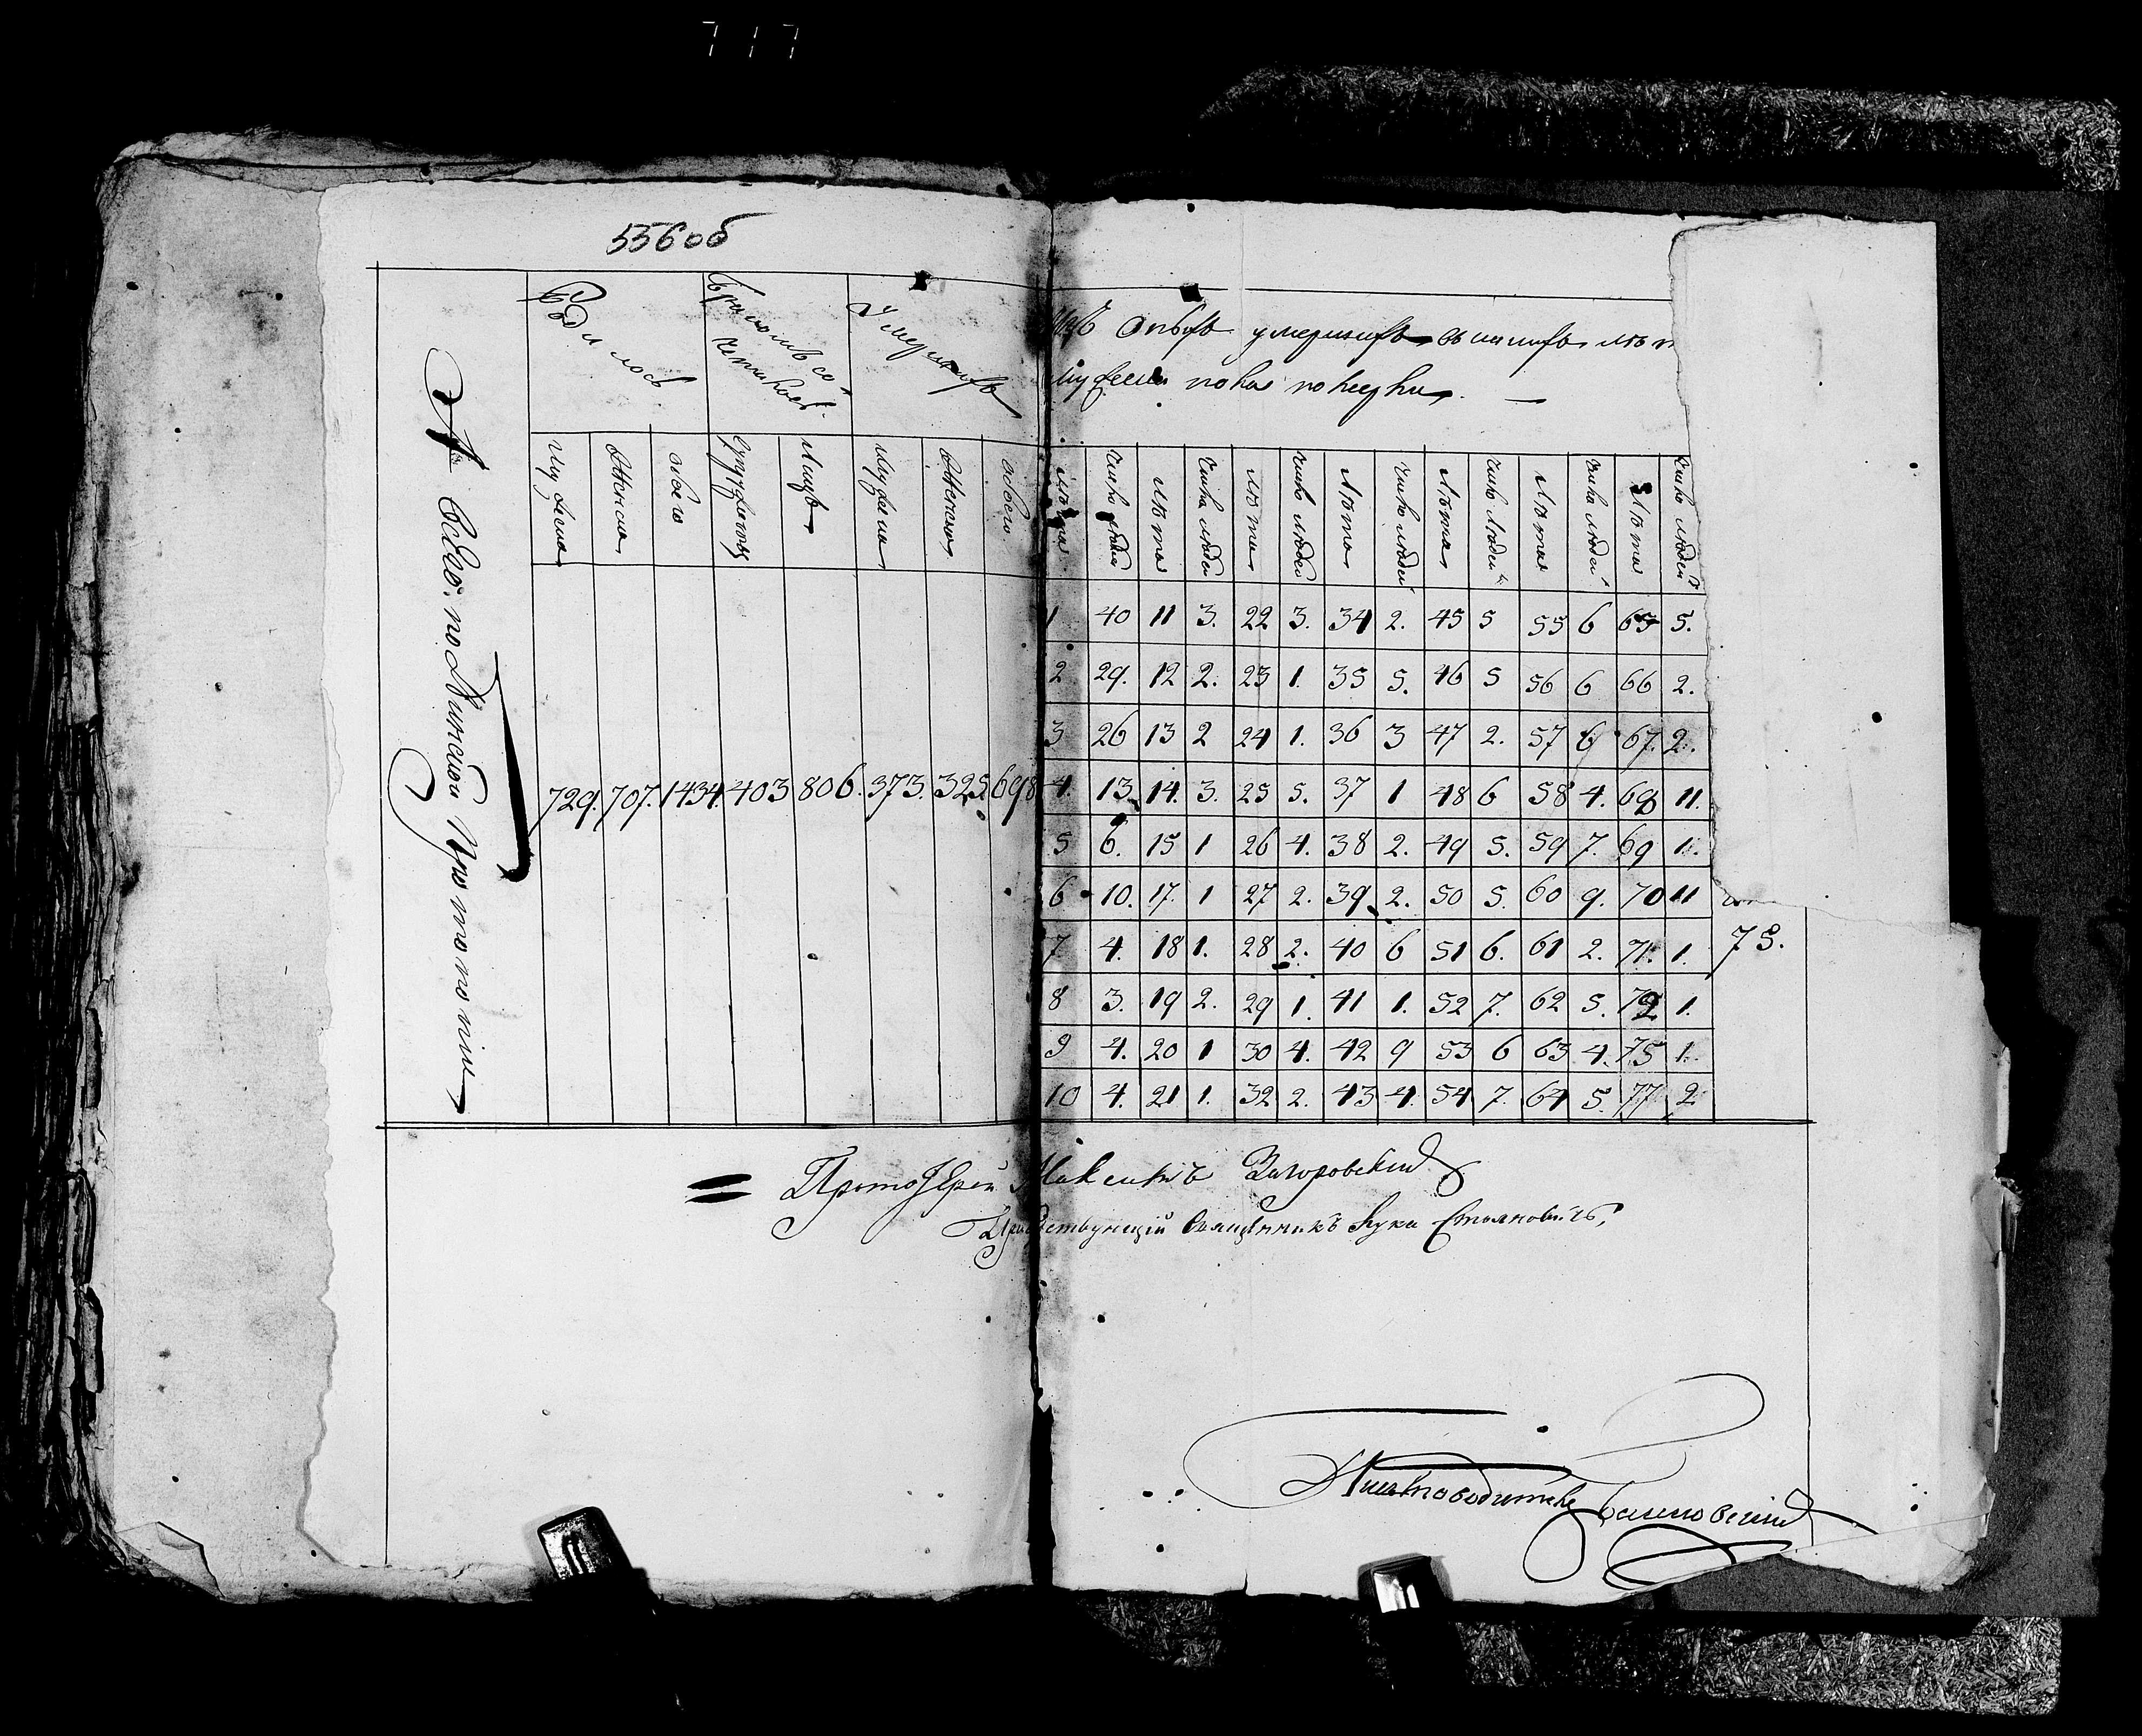 717
556 об
Родилось
Бракомъ со-
четавшихся
Умершихъ
Изъ оныхъ умершихъ въ какихъ лѣт
мужеска пола показаны. —
мужеска
Женска
обоего
Супружествъ
Лицъ
мужеска
Женска
обоего
лѣта
число людей
лѣта
число людей
лѣта
число людей
лѣта
число людей
лѣта
число людей
лѣта
число людей
лѣта
число людей
А всего по Минской Протопопіи
729. 707. 1434. 403 806. 373. 325. 698
1 40 11 3. 22 3. 34 2. 45 5 55 6 65 5.
2 29. 12 2. 23 1. 35 5. 46 5 56 6 66 2.
3 26 13 2 24 1. 36 3 47 2. 57 6 67. 2.
4. 13. 14. 3. 25 5. 37 1 48 6 58 4. 68 11.
5 6. 15 1 26 4. 38 2. 49 5. 59 7. 69 1.
6 10. 17. 1 27 2. 39 2. 50 5. 60 9. 70 11
7 4. 18 1. 28 2. 40 6 51 6. 61 2. 71. 1. 75.
8 3. 19 2. 29 1. 41 1. 52 7. 62 5. 72 1.
9 4. 20 1 30 4. 42 9 53 6 63 4. 75 1.
10 4. 21 1. 32 2. 43 4. 54 7. 64 5. 77 2
Протоіерей Максимъ Загоровскій
Присутствующій Священникъ Лука Стояновичъ,
Писмоводитель